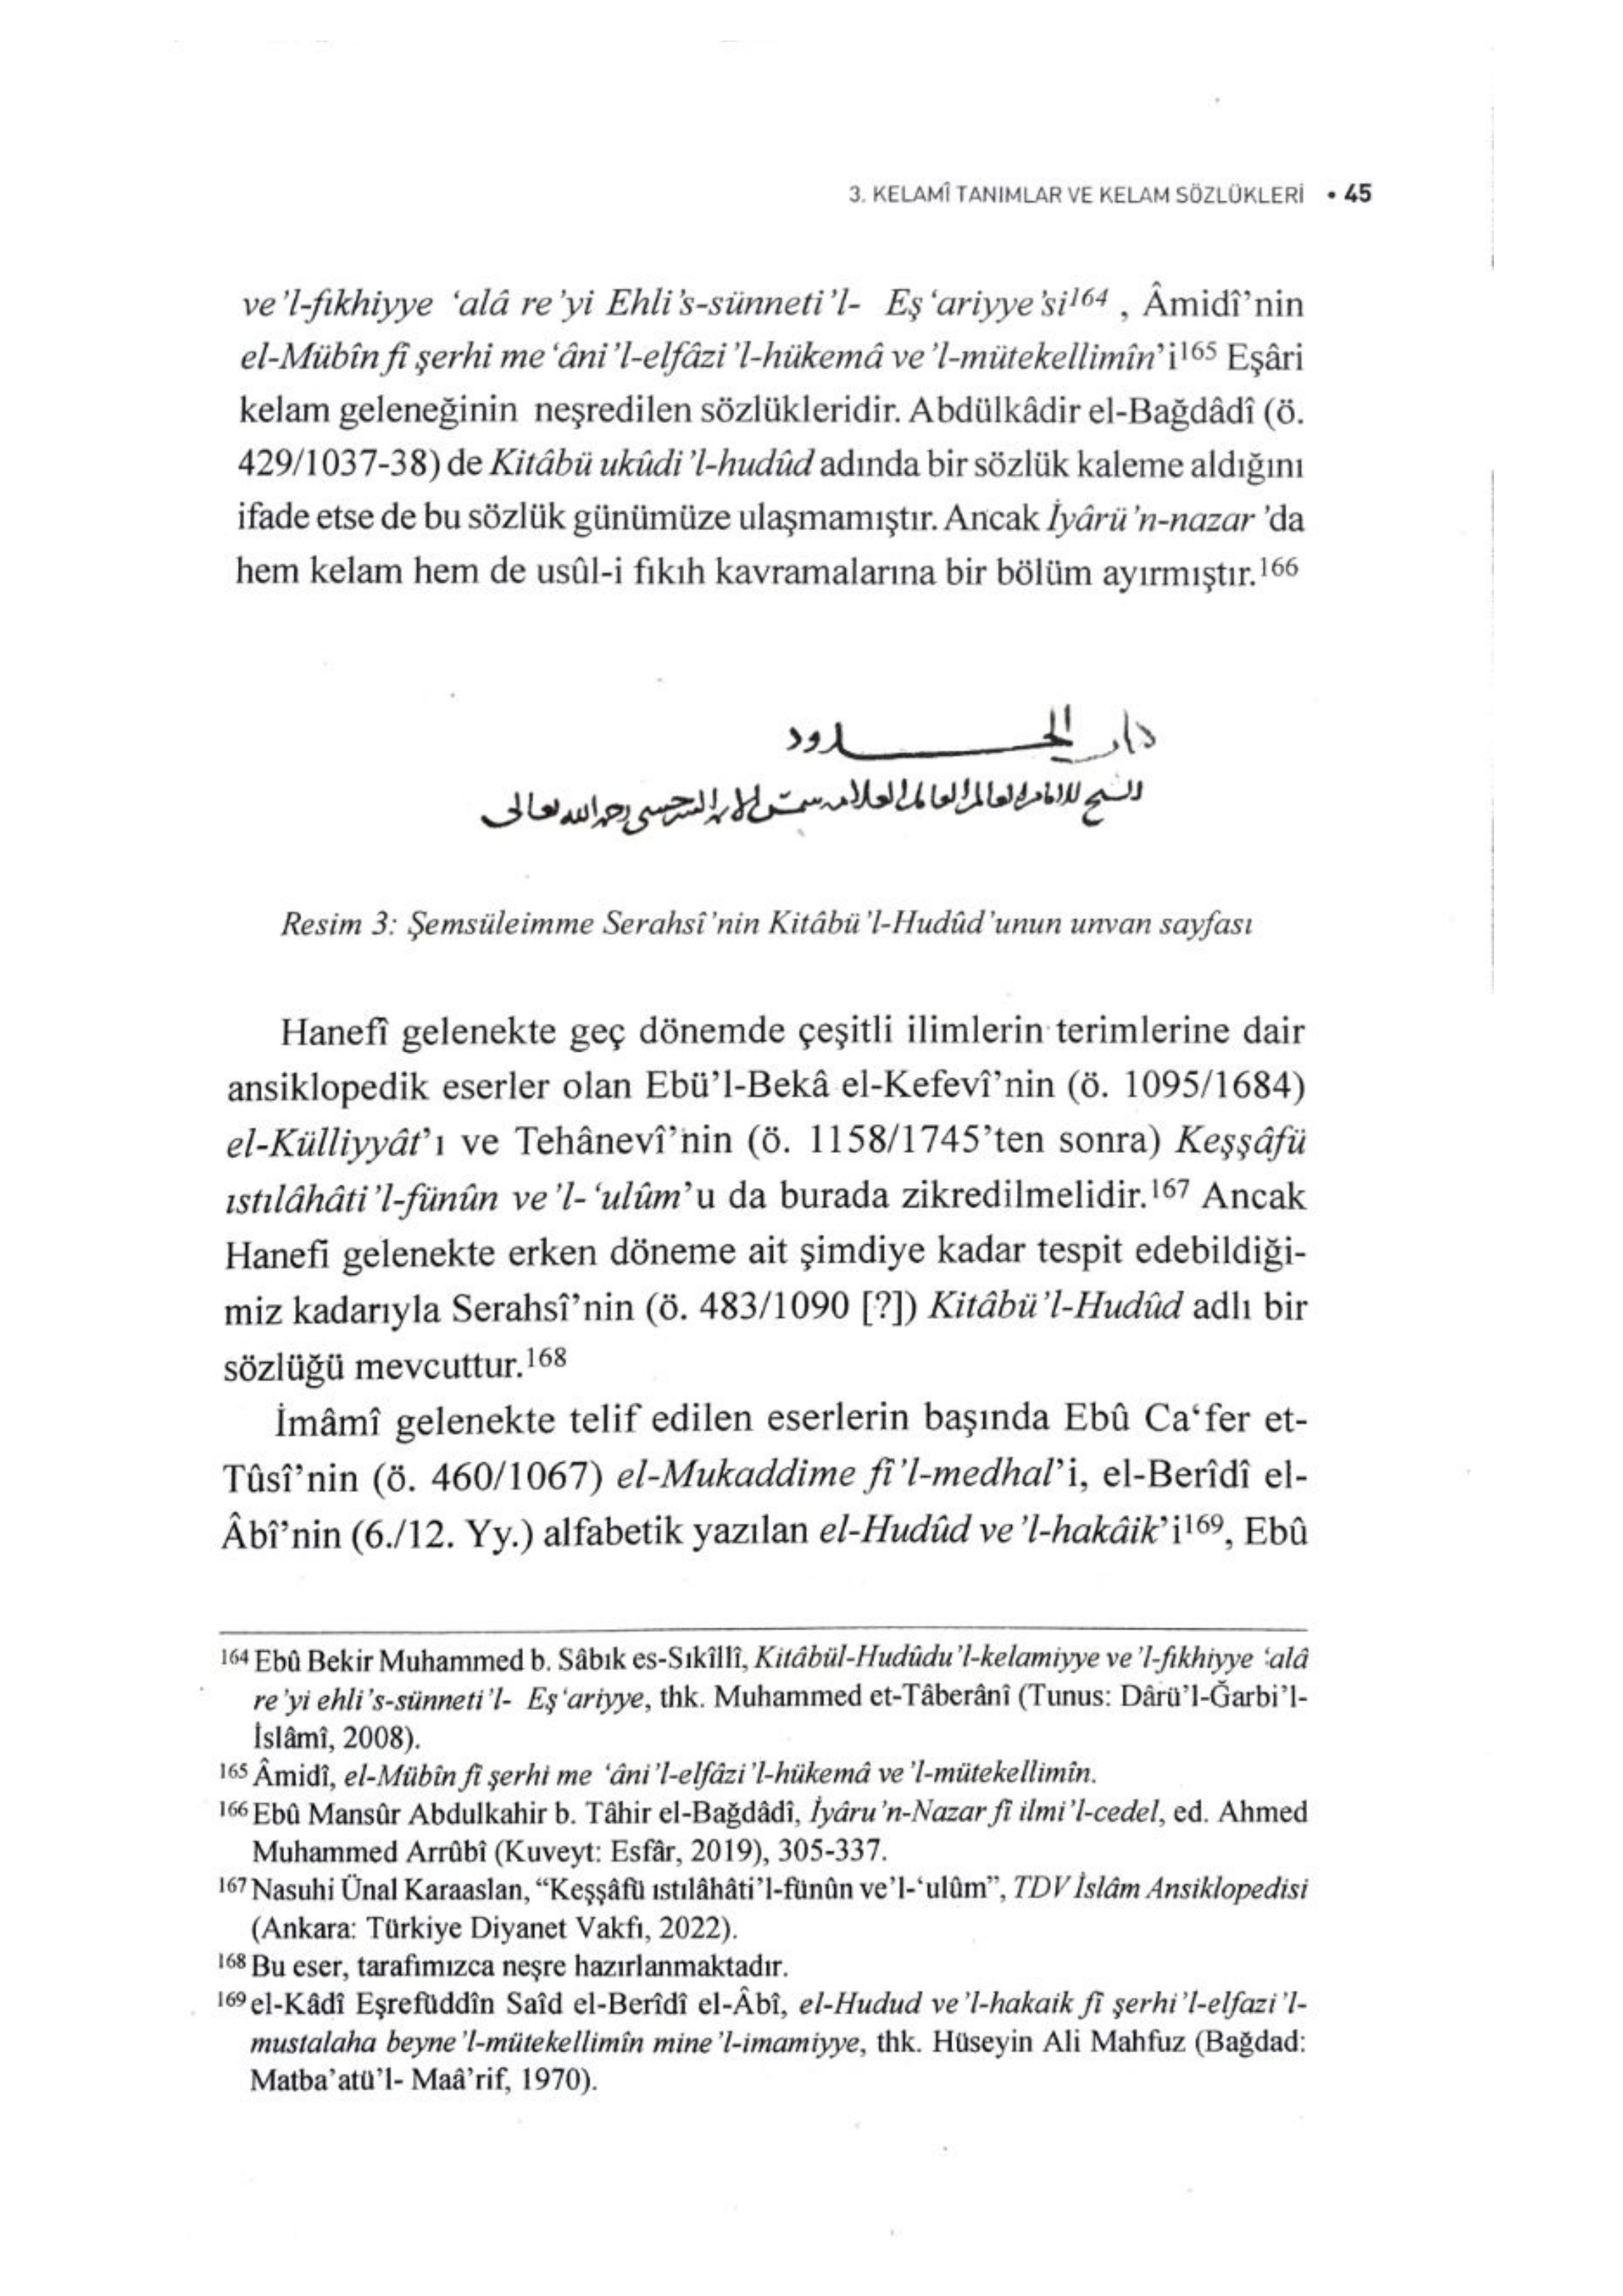 3. KELAMÎ TANIMLAR VE KELAM SÖZLÜKLERİ • 45
ve’l-fıkhiyye ‘alâ re’yi Ehli’s-sünneti’l- Eş‘ariyye’si164 , Âmidî’nin
el-Mübîn fî şerhi me‘âni’l-elfâzi’l-hükemâ ve’l-mütekellimîn’i165 Eşâri
kelam geleneğinin neşredilen sözlükleridir. Abdülkâdir el-Bağdâdî (ö.
429/1037-38) de Kitâbü ukûdi’l-hudûd adında bir sözlük kaleme aldığını
ifade etse de bu sözlük günümüze ulaşmamıştır. Ancak İyârü’n-nazar ’da
hem kelam hem de usûl-i fıkıh kavramalarına bir bölüm ayırmıştır.166
الحدود
السرخسي رحمه الله تعالى
Resim 3: Şemsüleimme Serahsî’nin Kitâbü’l-Hudûd’unun unvan sayfası
Hanefî gelenekte geç dönemde çeşitli ilimlerin terimlerine dair
ansiklopedik eserler olan Ebü’l-Bekâ el-Kefevî’nin (ö. 1095/1684)
el-Külliyyât’ı ve Tehânevî’nin (ö. 1158/1745’ten sonra) Keşşâfü
ıstılâhâti’l-fünûn ve’l-‘ulûm’u da burada zikredilmelidir.167 Ancak
Hanefi gelenekte erken döneme ait şimdiye kadar tespit edebildiği-
miz kadarıyla Serahsî’nin (ö. 483/1090 [?]) Kitâbü’l-Hudûd adlı bir
sözlüğü mevcuttur.168
İmâmî gelenekte telif edilen eserlerin başında Ebû Ca‘fer et-
Tûsî’nin (ö. 460/1067) el-Mukaddime fî’l-medhal’i, el-Berîdî el-
Âbî’nin (6./12. Yy.) alfabetik yazılan el-Hudûd ve’l-hakâik’i169, Ebû
164 Ebû Bekir Muhammed b. Sâbık es-Sıkîllî, Kitâbül-Hudûdu’l-kelamiyye ve’l-fıkhiyye ‘alâ
re’yi ehli’s-sünneti’l- Eş‘ariyye, thk. Muhammed et-Tâberânî (Tunus: Dârü’l-Ğarbi’l-
İslâmî, 2008).
165 Âmidî, el-Mübîn fî şerhi me ‘âni’l-elfâzi’l-hükemâ ve’l-mütekellimîn.
166 Ebû Mansûr Abdulkahir b. Tâhir el-Bağdâdî, İyâru’n-Nazar fî ilmi’l-cedel, ed. Ahmed
Muhammed Arrûbî (Kuveyt: Esfâr, 2019), 305-337.
167 Nasuhi Ünal Karaaslan, “Keşşâfü ıstılâhâti’l-fünûn ve’l-‘ulûm”, TDV İslâm Ansiklopedisi
(Ankara: Türkiye Diyanet Vakfı, 2022).
168 Bu eser, tarafımızca neşre hazırlanmaktadır.
169 el-Kâdî Eşrefüddîn Saîd el-Berîdî el-Âbî, el-Hudud ve’l-hakaik fî şerhi’l-elfazi’l-
mustalaha beyne’l-mütekellimîn mine’l-imamiyye, thk. Hüseyin Ali Mahfuz (Bağdad:
Matba’atü’l- Maâ’rif, 1970).